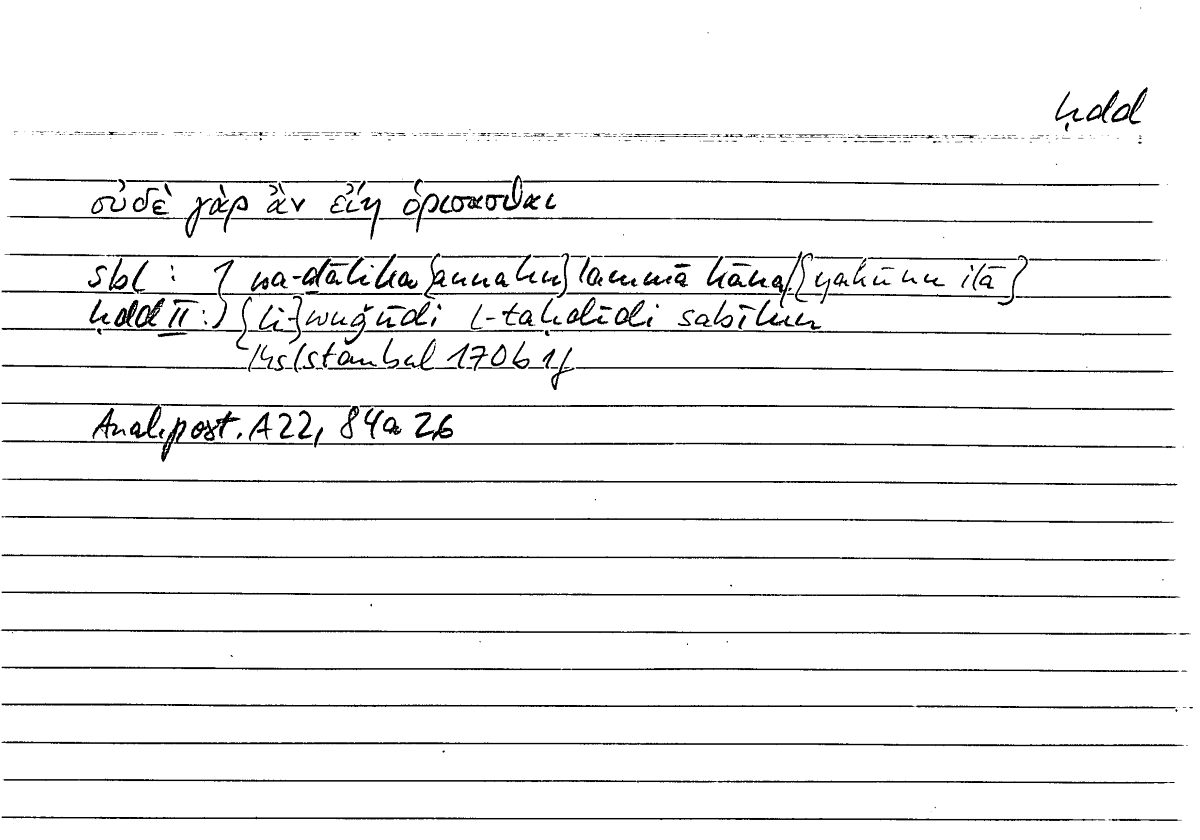 ḥdd
οὐδὲ γὰρ ἂν εἴη ὁρίσασθαι
sbl : } wa-ḏālika {annahu} lammā kāna/{yakūnu ilā}
ḥdd II : } {li-}wuǧūdi l-taḥdīdi sabīlun
Hs Istanbul 170b 1f
Anal. post. A22, 84a 26